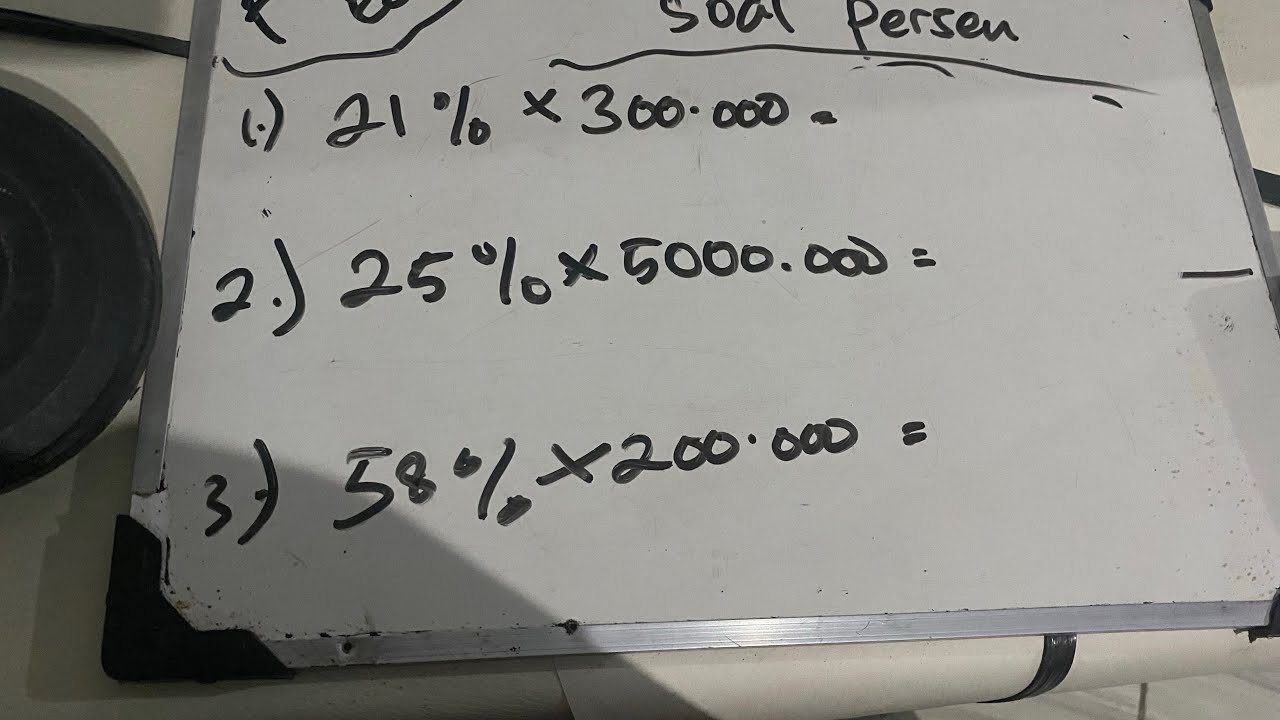 Soal Persen
1.) 21% × 300.000 =
2.) 25% × 5000.000 =
3.) 58% × 200.000 =